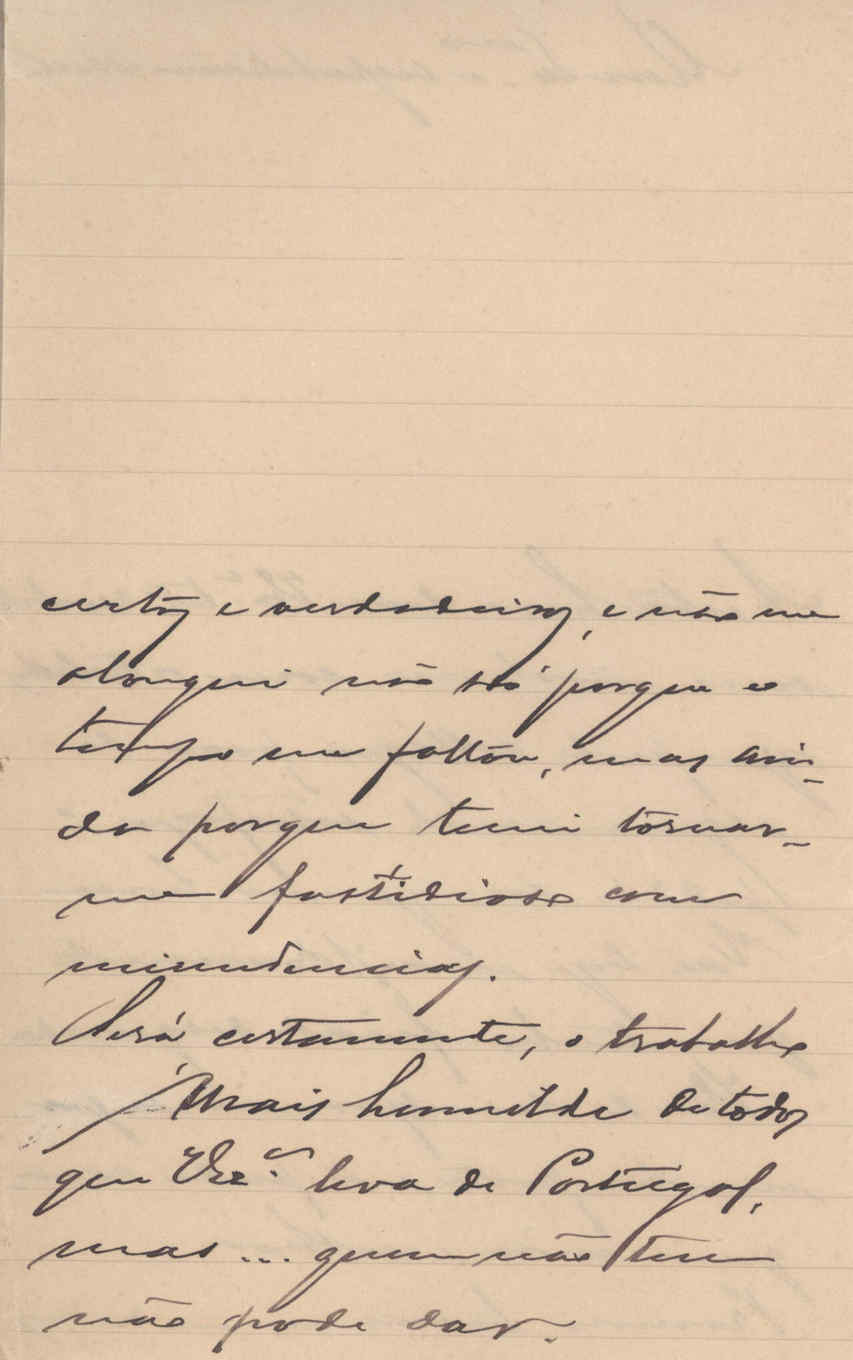 certos e verdadeiros, e não me
alonguei não só porque o
tempo me faltou, mas ain-
da porque temi tornar-
me fastidioso com
minudencias.
Será certamente, o trabalho
mais humilde de todos
que V. Exª leva de Portugal,
mas ... quem não tem
não pode dar.